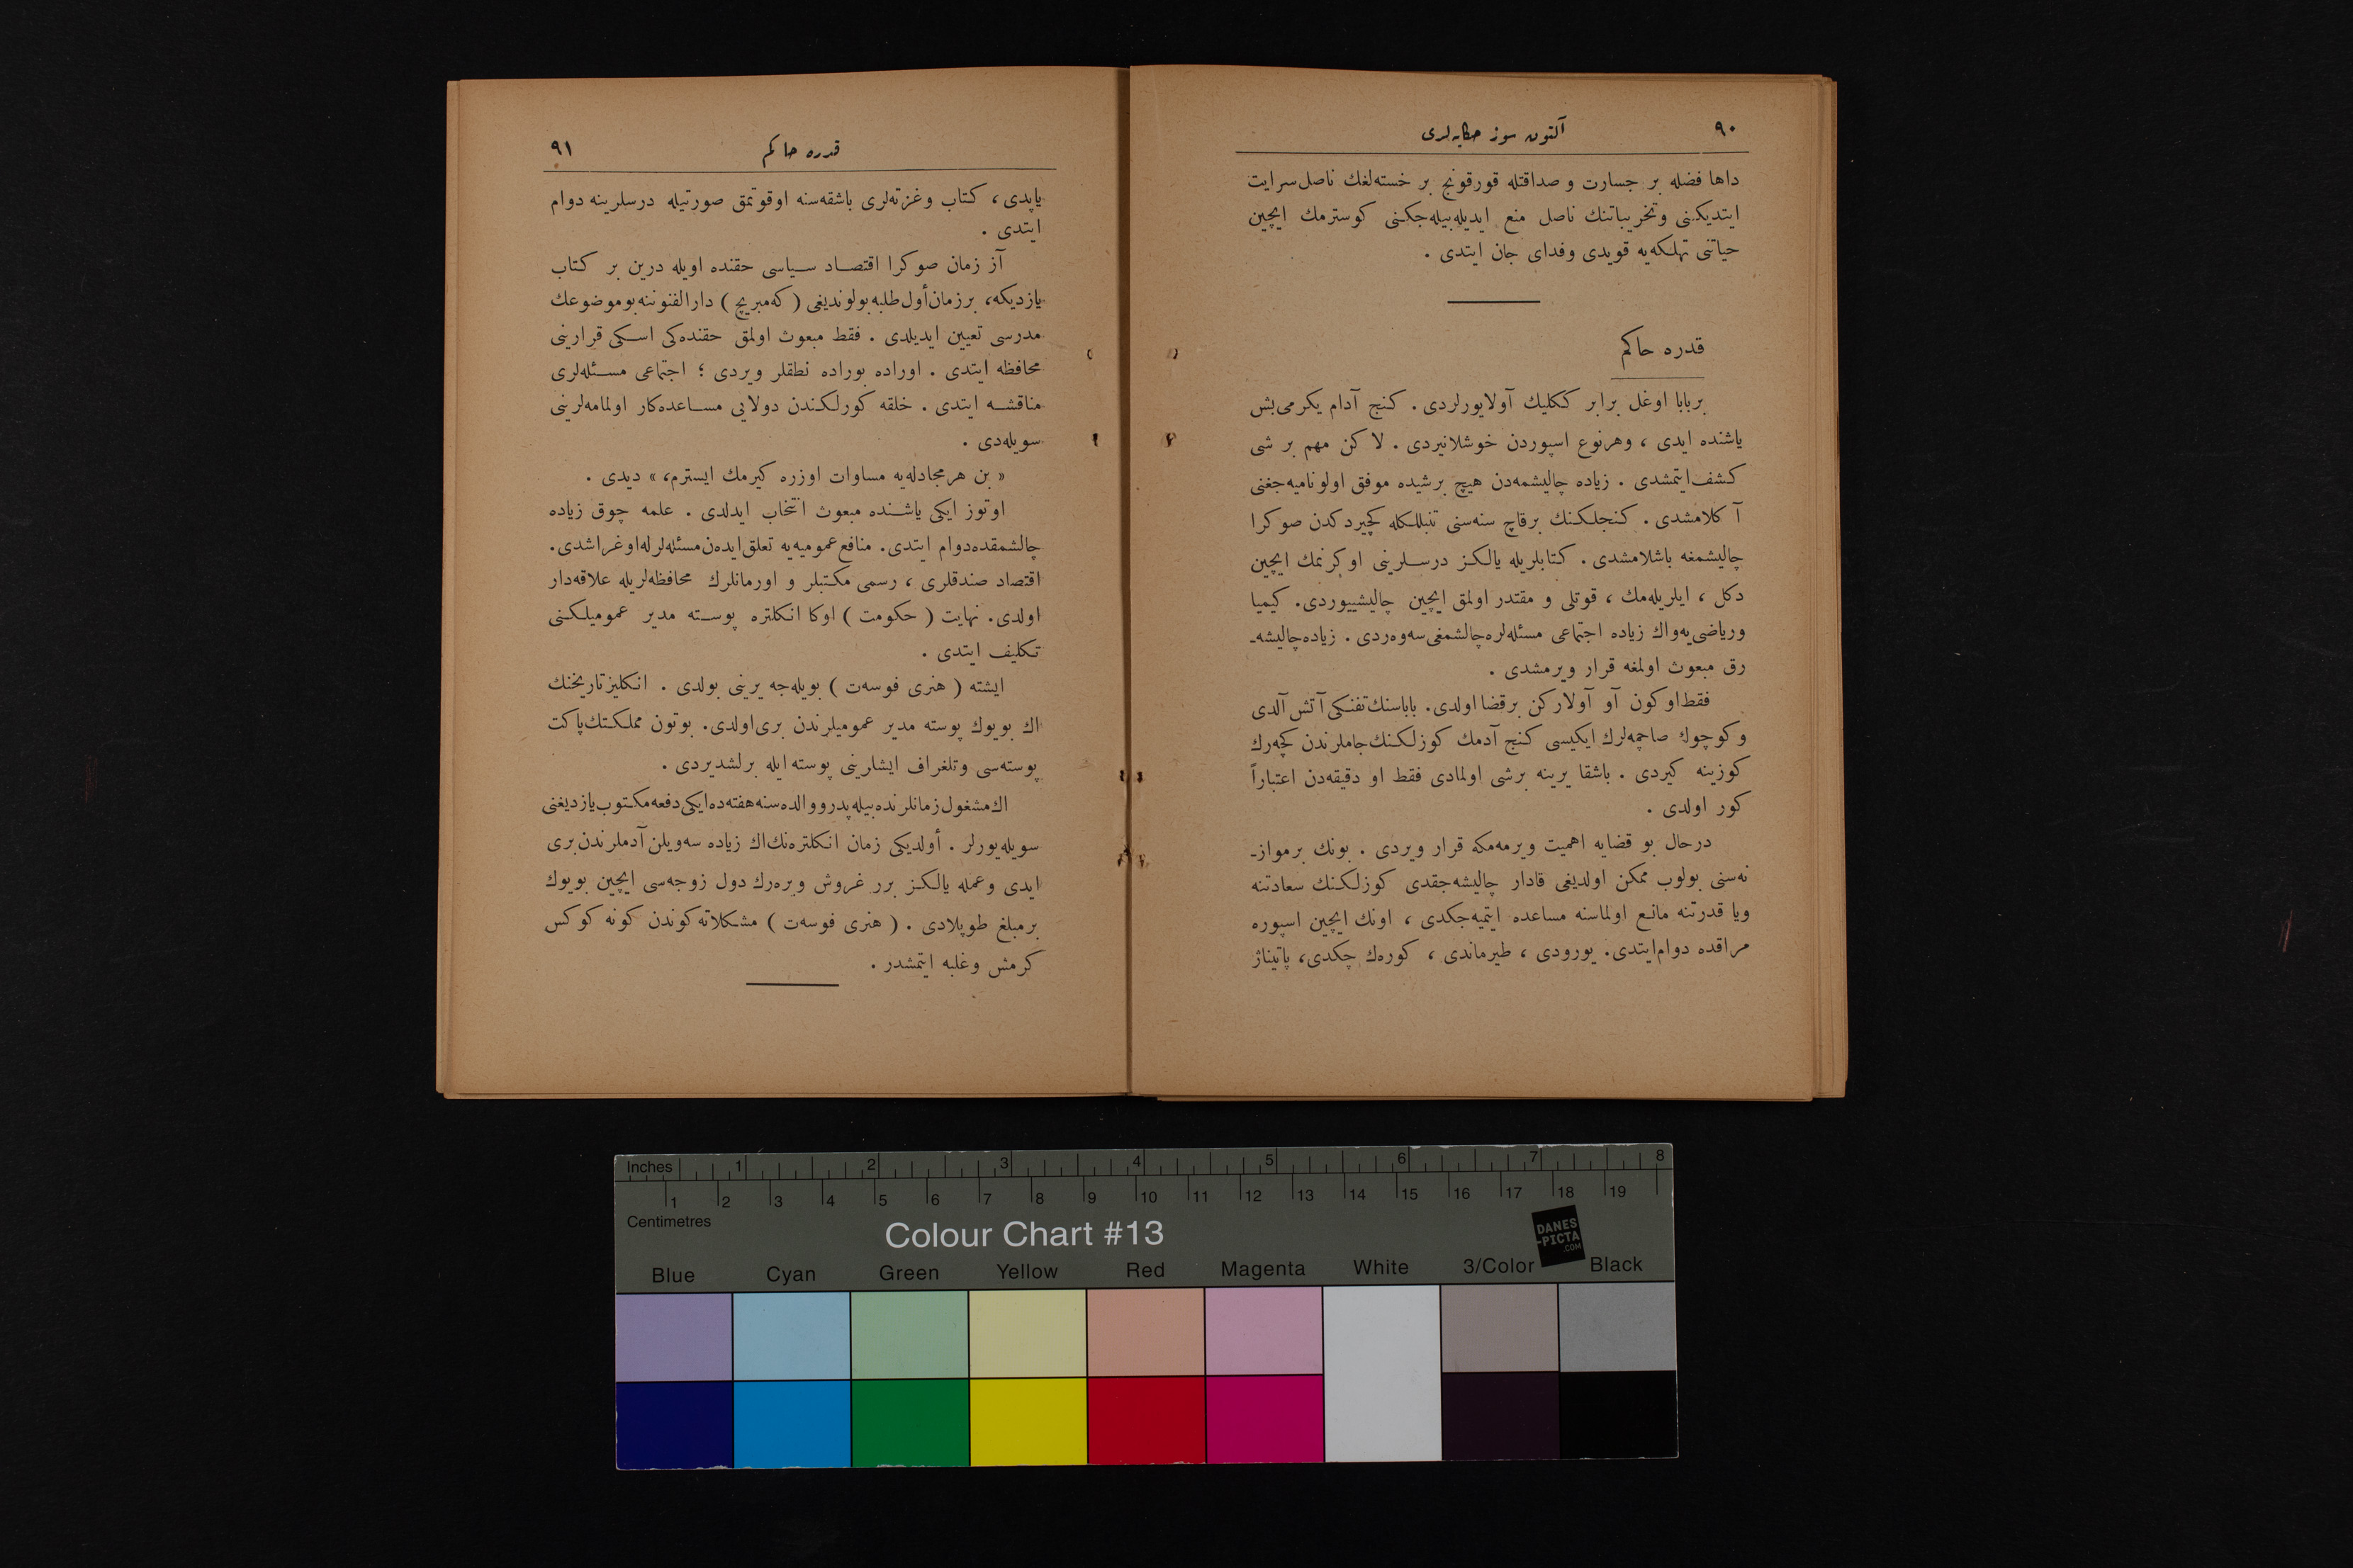 ٩٠
آلتون سوز حكایه‌لری
داها فضله بر جسارت و صداقتله قورقونج بر خسته‌لغك ناصل سرایت
ایتدیكنی وتخریباتنك ناصل منع ایدیله‌بیله‌جكنی كوسترمك ایچین
حیاتنی تهلكه‌یه قویدی وفدای جان ایتدی .
قدره حاكم
بربابا اوغل برابر ككلیك آولایورلردی . كنج آدام یكرمی‌بش
یاشنده ایدی ، وهرنوع اسپوردن خوشلانیردی . لاكن مهم بر شی
كشف‌ایتمشدی . زیاده چالیشمه‌دن هیچ برشیده موفق اولونامیه‌جغنی
آكلامشدی . كنجلكنك برقاچ سنه‌سنی تنبللكله كچیردكدن صوكرا
چالیشمغه باشلامشدی . كتابلریله یالكز درسلرینی اوكرنمك ایچین
دكل ، ایلریله‌مك ، قوتلی و مقتدر اولمق ایچین چالیشییوردی . كیمیا
وریاضی‌یه‌واك زیاده اجتماعی مسئله‌لره‌چالشمغی‌سه‌وه‌ردی . زیاده‌چالیشه‌ـ
رق مبعوث اولمغه قرار ویرمشدی .
فقط‌اوكون آو آولاركن برقضا اولدی . باباسنك‌تفنكی‌آتش آلدی
وكوچوك صاچمه‌لرك ایكیسی كنج آدمك كوزلكنك‌جاملرندن كچه‌رك
كوزینه كیردی . باشقا یرینه برشی اولمادی فقط او دقیقه‌دن اعتباراً
كور اولدی .
درحال بو قضایه اهمیت ویرمه‌مكه قرار ویردی . بونك برموازـ
نه‌سنی بولوب ممكن اولدیغی قادار چالیشه‌جقدی كوزلكنك سعادتنه
ویا قدرتنه مانع اولماسنه مساعده ایتمیه‌جكدی ، اونك ایچین اسپوره
مراقده دوام‌ایتدی . یورودی ، طیرماندی ، كوره‌ك چكدی ، پاتیناژ
قدره حاكم
٩١
یاپدی ، كتاب وغزته‌لری باشقه‌سنه اوقوتمق صورتیله درسلرینه دوام
ایتدی .
آز زمان صوكرا اقتصاد سیاسی حقنده اویله درین بر كتاب
یازدیكه ، برزمان‌أول‌طلبه‌بولوندیغی ( كه‌مبریچ ) دارالفنوننه‌بوموضوعك
مدرسی تعیین ایدیلدی . فقط مبعوث اولمق حقنده‌كی اسكی قرارینی
محافظه ایتدی . اوراده بوراده نطقلر ویردی ؛ اجتماعی مسئله‌لری
مناقشه ایتدی . خلقه كورلكندن دولایی مساعده‌كار اولمامه‌لرینی
سویله‌دی .
« بن هرمجادله‌یه مساوات اوزره كیرمك ایسترم ، » دیدی .
اوتوز ایكی یاشنده مبعوث انتخاب ایدلدی . علمه چوق زیاده
چالشمقده‌دوام ایتدی . منافع‌عمومیه‌یه تعلق‌ایده‌ن‌مسئله‌لرله‌اوغراشدی .
اقتصاد صندقلری ، رسمی مكتبلر و اورمانلرك محافظه‌لریله علاقه‌دار
اولدی . نهایت ( حكومت ) اوكا انكلتره پوسته مدیر عمومیلكنی
تكلیف ایتدی .
ایشته ( هنری فوسه‌ت ) بویله‌جه یرینی بولدی . انكلیزتاریخنك
اك بویوك پوسته مدیر عمومیلرندن بری‌اولدی . بوتون مملكتك‌پاكت
پوسته‌سی وتلغراف ایشارینی پوسته ایله برلشدیردی .
اك‌مشغول‌زمانلرنده‌بیله‌پدرووالده‌سنه‌هفته‌ده‌ایكی‌دفعه‌مكتوب‌یازدیغنی
سویله‌یورلر . أولدیكی زمان انكلتره‌نك‌اك زیاده سه‌ویلن‌آدملرندن‌بری
ایدی وعمله یالكز برر غروش ویره‌رك دول زوجه‌سی ایچین بویوك
برمبلغ طوپلادی . ( هنری فوسه‌ت ) مشكلاته كوندن كونه كوكس
كرمش وغلبه ایتمشدر .
Inches 1 2 3 4 5 6 7 8
1 2 3 4 5 6 7 8 9 10 11 12 13 14 15 16 17 18 19
Centimetres
Colour Chart #13
DANES
-PICTA
.COM
Blue Cyan Green Yellow Red Magenta White 3/Color Black